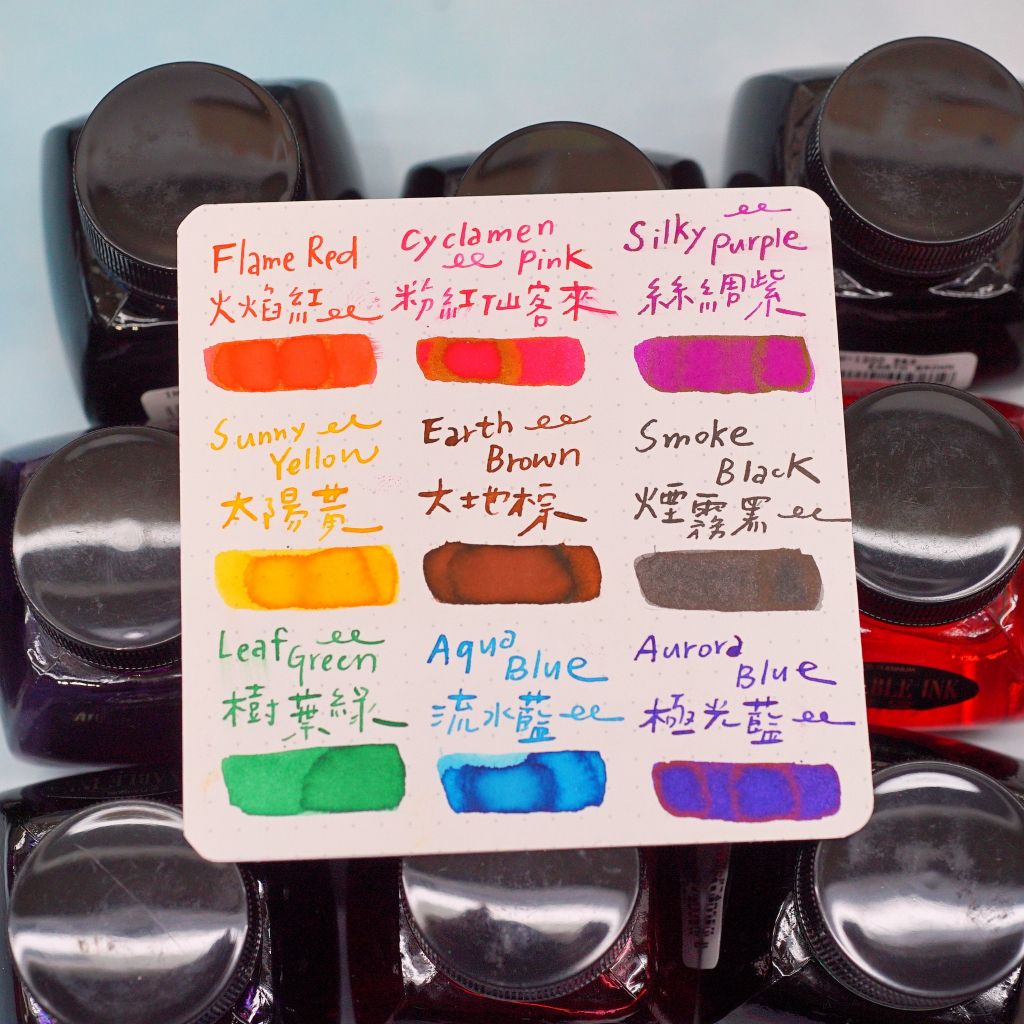 Flame Red
火焰紅
Cyclamen
Pink
粉紅仙客來
Silky Purple
絲綢紫
Sunny
Yellow
太陽黃
Earth
Brown
大地棕
Smoke
Black
煙霧黑
Leaf
Green
樹葉綠
Aqua
Blue
流水藍
Aurora
Blue
極光藍
INK